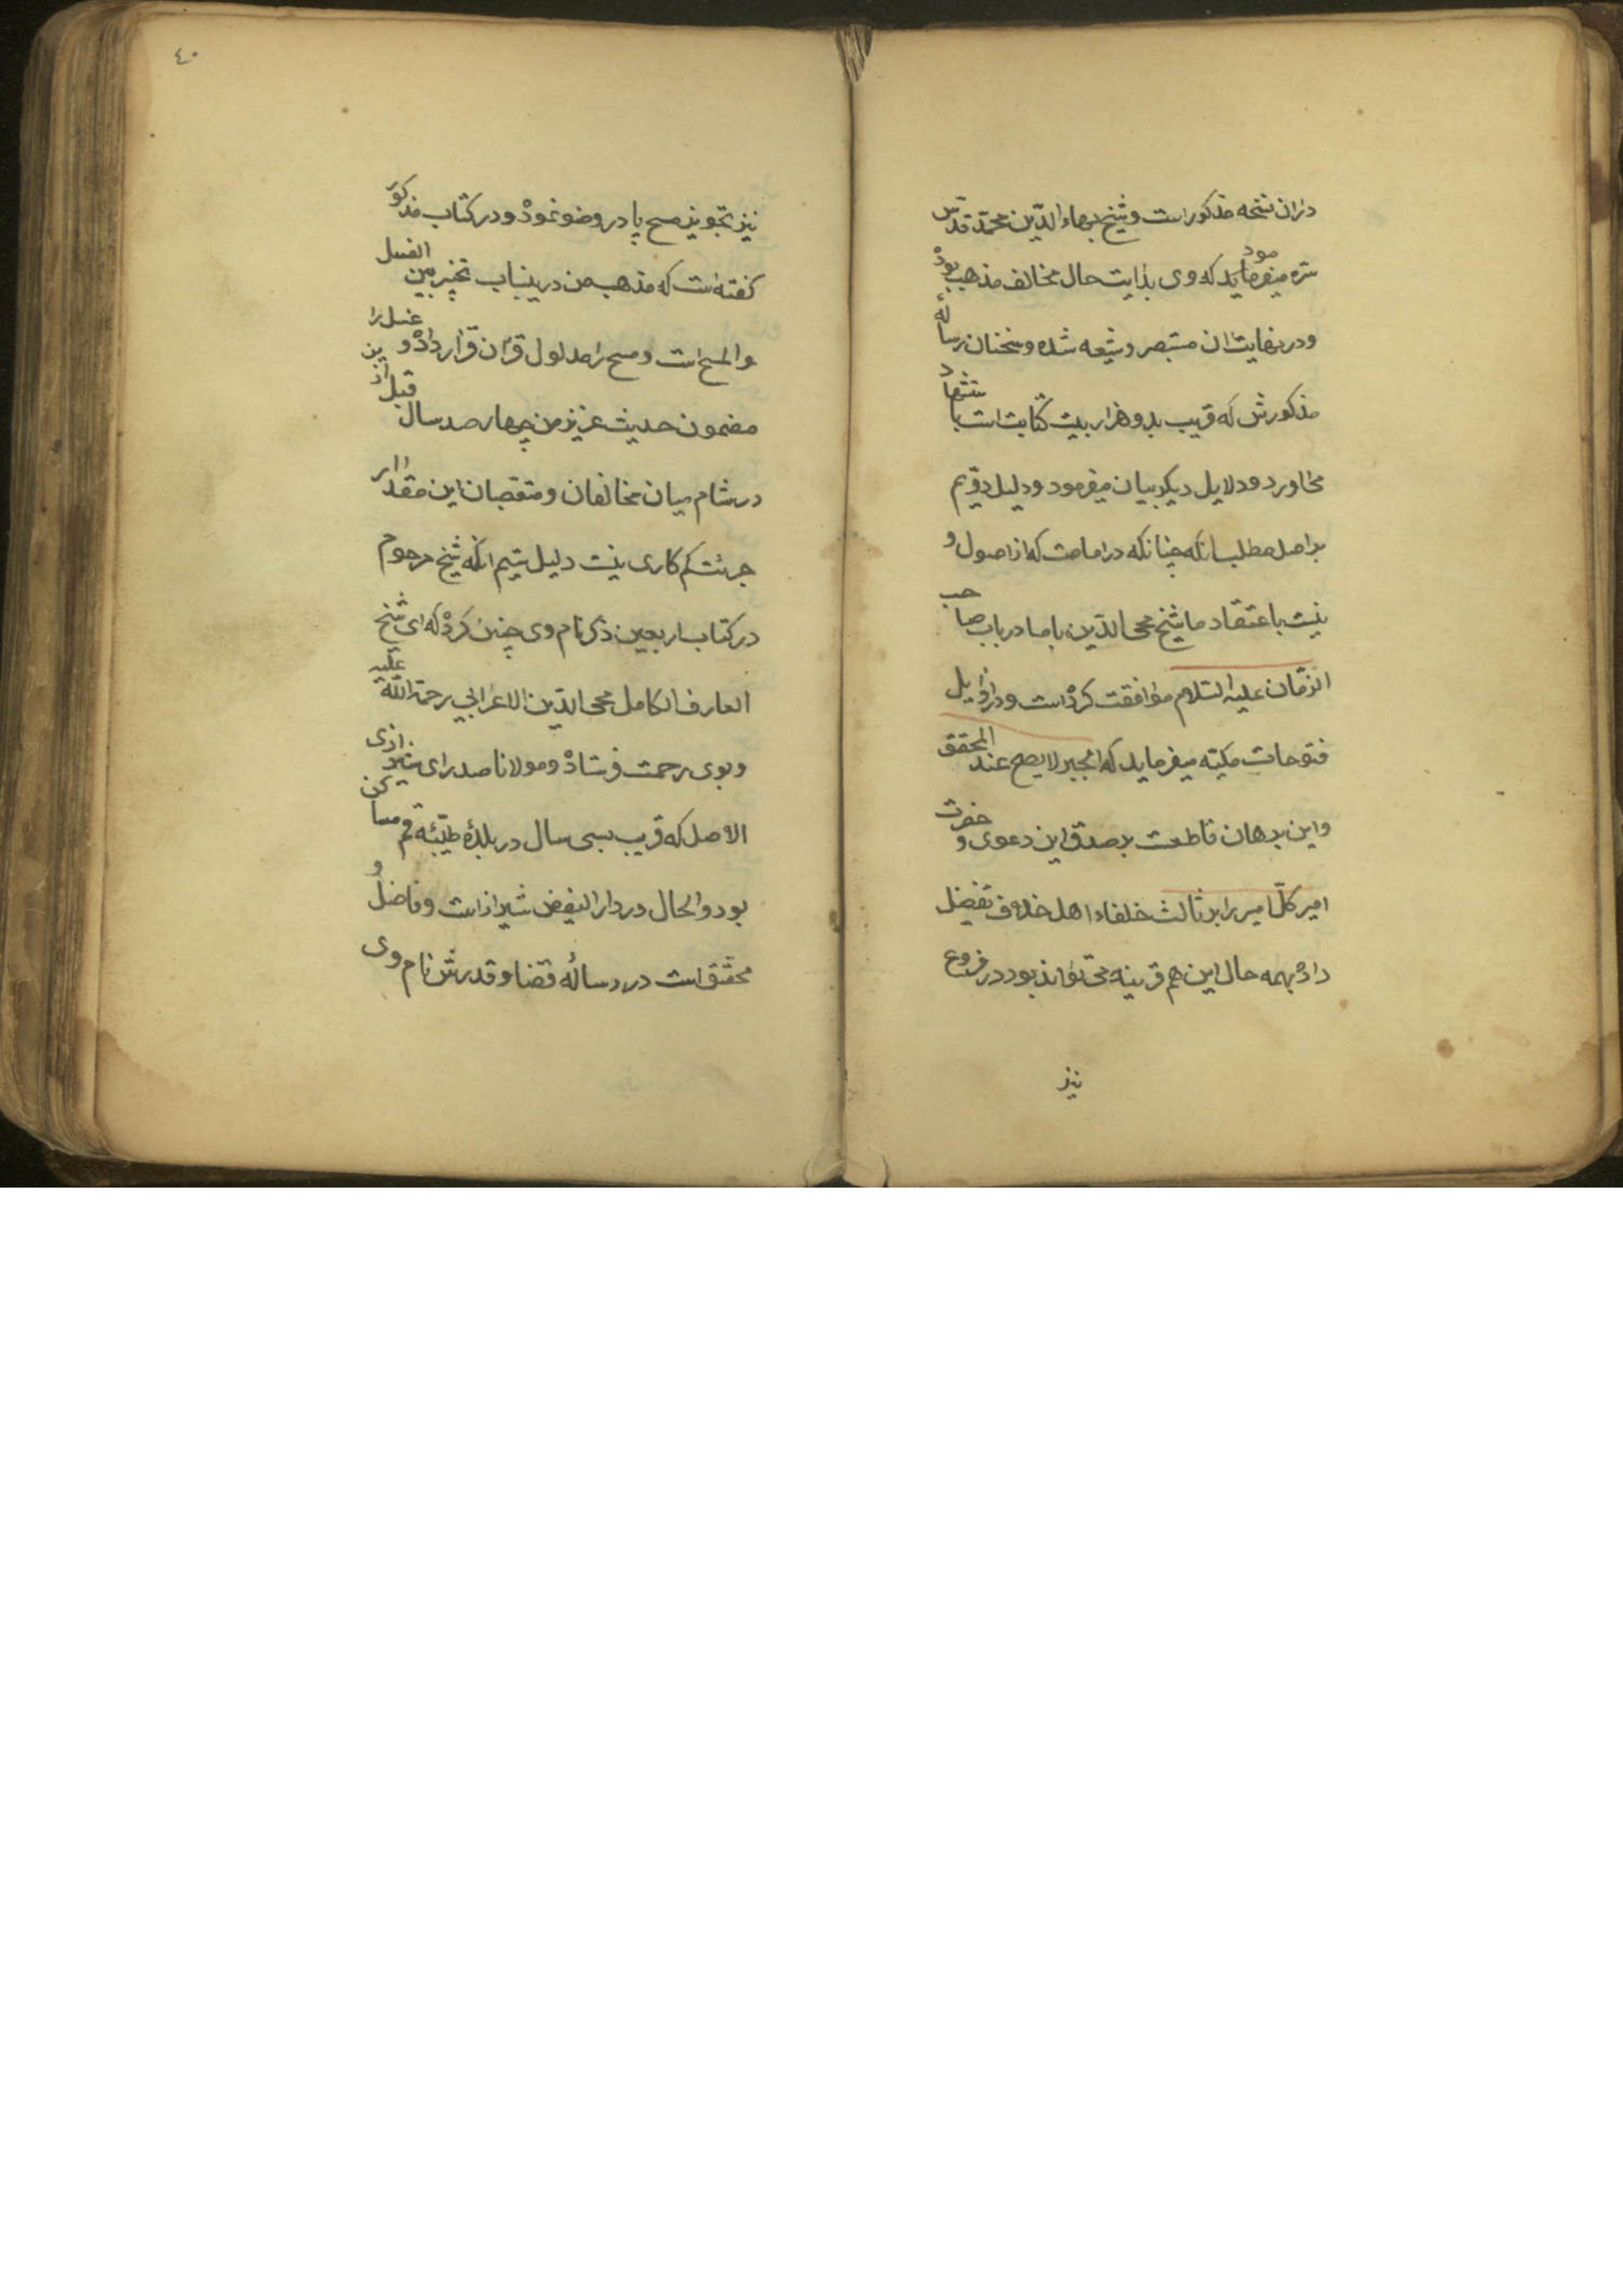 دران نسخه مذکور است و شیخ بهاء الدّین محمّد قدّس
سرّه میفرماید که وی بدایت حال مخالف مذهب بوده
و در نهایت ان مستبصر و شیعه شده و سخنان رساله
مذکورش که قریب بدو هزار بیت کتابت است باستشهاد
میاورد و دلایل دیگر بیان میفرمود و دلیل دوّیم
بر اصل مطلب انکه چنانکه در امامت که از اصول و
نیست باعتقاد ما شیخ محی الدّین با ما در باب صاحب
الزمان علیه السّلام موافقت کرده است و در اوایل
فتوحات مکیّه میفرماید که الجبر لا یصح عند المحقق
و این برهان قاطعست بر صدق این دعوی و حضرت
امیر کلّ امیر را بر ثالث خلفاء اهل خلاف تفضیل
داده بهمه حال این هم قرینه می تواند بود در فروع
نیز
٤٠
نیز تجویز مسح پا در وضو نموده و در کتاب مذکور
گفته است که مذهب من درینباب تخییر بین الغسل
و المسح است و مسح را مدلول قران قرار داده و غسل را
مضمون حدیث عزیز من چهار صد سال قبل ازین
در شام میان مخالفان و متعصبان این مقدار
جرئت کم کاری نیست دلیل سیم انکه شیخ مرحوم
در کتاب اربعین ذکر نام وی چنین کرده که ای شیخ
العارف الکامل محی الدّین الاعرابی رحمة الله علیه
و بوی رحمت فرستاده و مولانا صدرای شیرازی
الاصل که قریب بسی سال در بلدۀ طیّبۀ قم ساکن
بود و الحال در دار الفیض شیراز است و فاضل و
محقّق است در رسالۀ قضا و قدرش نام وی